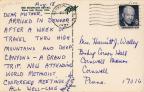 Aug. 18
DEAR MOTHER,
ARRIVED IN DENVER
AFTER A WEEK OF
TRAVEL THRU HIGH
MOUNTAINS AND DEEP
CANYONS – A GRAND
TRIP. NOW ATTENDING
WORLD METHODIST
CONFERENCE MEETINGS
ALL WELL – LOVE
Mrs. Harriett J.
Cornwall
Cornwall
Penna.
17016